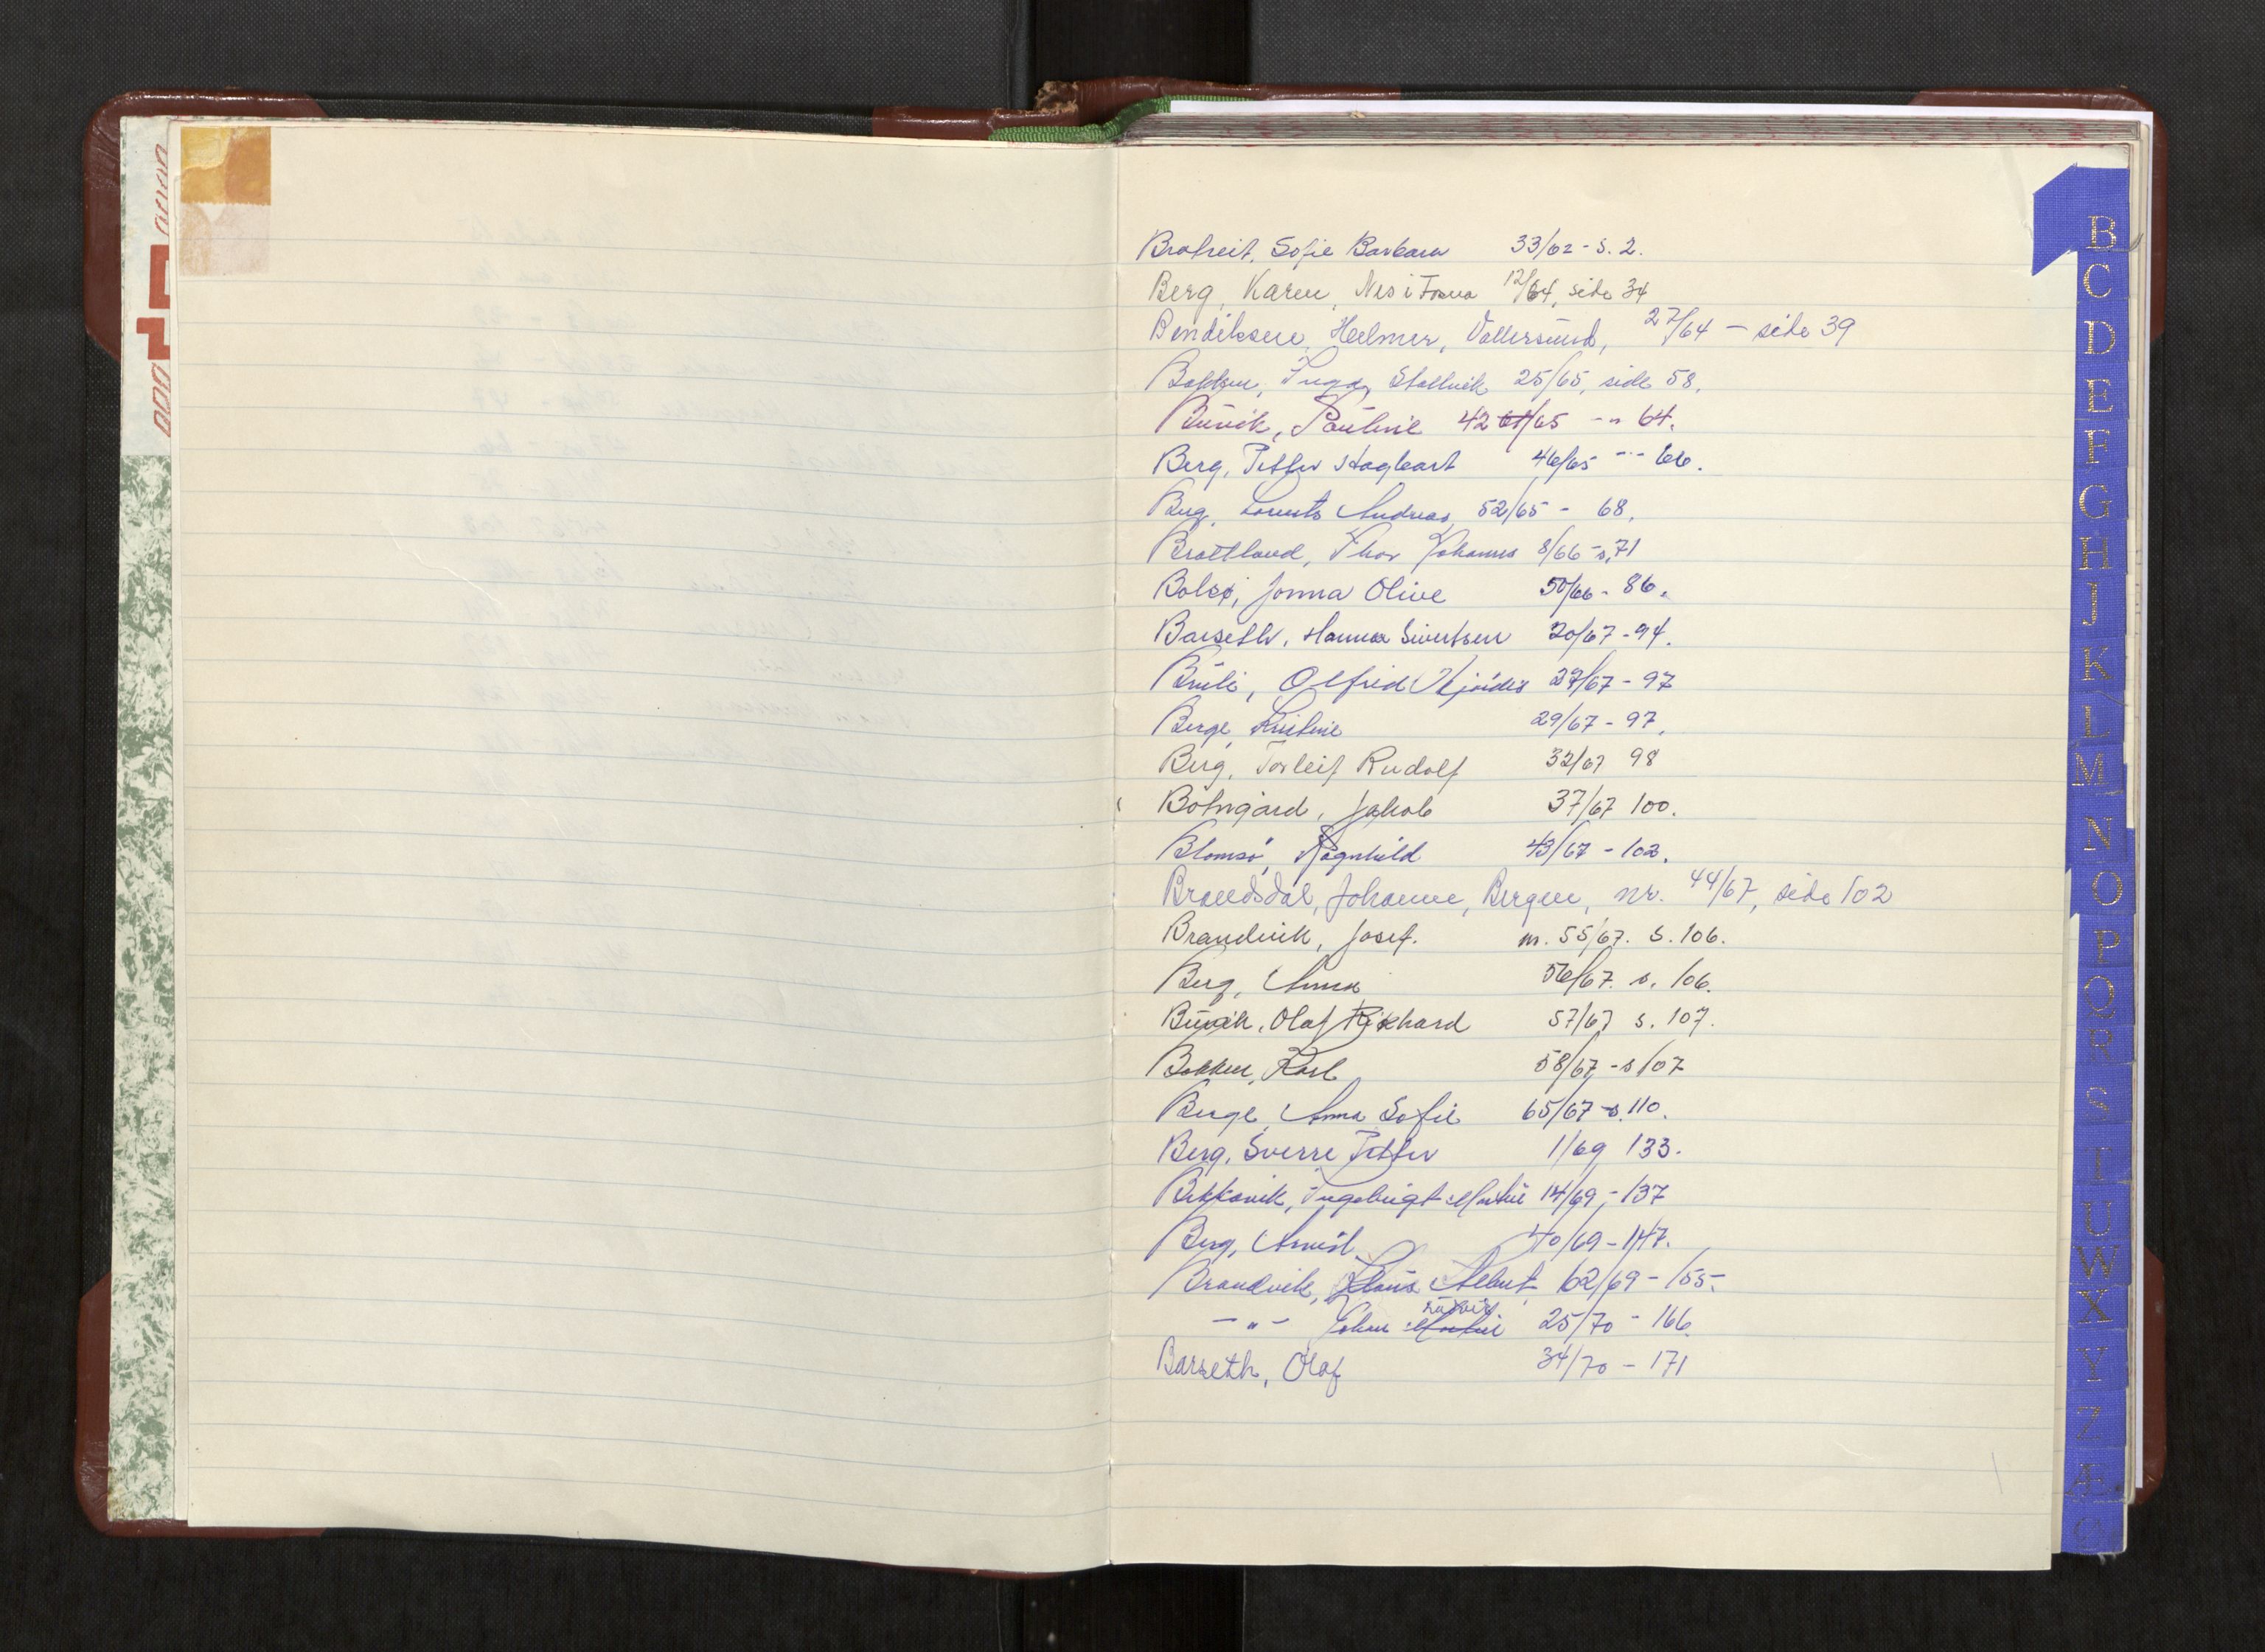 Brøtreit, Sofie Barbara 33/62 - s. 2.
Berg, Karen, Nes i Fosna 12/64, side 34
Bendiksen, Helmer, Vallersund, 27/64 - side 39
Bakken, Inga, Stallvik 25/65, side 58.
Buvik, Pauline 42/65 - " 64.
Berg, Petter Hagbart 46/65 --- 66.
Berg, Lorents Andreas, 52/65 - 68.
Brattland, Thor Johannes 8/66 - s. 71
Bolsø, Jonna Olive 50/66 - 86.
Barseth, Hanna Sivertsen 20/67 - 94.
Olfrid Hjørdis 27/67 - 97
Berge, Kristine 29/67 - 97.
Berg, Torleif Rudolf 32/67 98
Botngård, Jakob 37/67 100.
Blomsø, Ragnhild 43/67 - 102.
Brandsdal, Johanne, Bergen, nr. 44/67, side 102
Brandvik, Josef. nr. 55/67. s. 106.
Berg, Anna 56/67. s. 106.
Buvik, Olaf Rikhard 57/67 s. 107.
Bakken, Karl 58/67 - s 107
Berge, Anna Sofie 65/67 - s. 110.
Berg, Sverre Petter 1/69 133.
Bekkavik, Ingebrigt Martin 14/69 - 137
Berg, Arnist 40/69 - 147.
Brandvik, Klaus Albert, 62/69 - 155.
- " - Johan 25/70 - 166.
Barseth, Olaf 34/70 - 171
B
C
D
E
F
G
H
I
K
L
M
N
O
P
Q
R
S
T
U
W
X
Y
Z
Æ
Ø